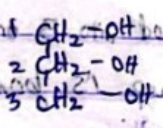 1 CH2-OH
2 CH2-OH
3 CH2-OH